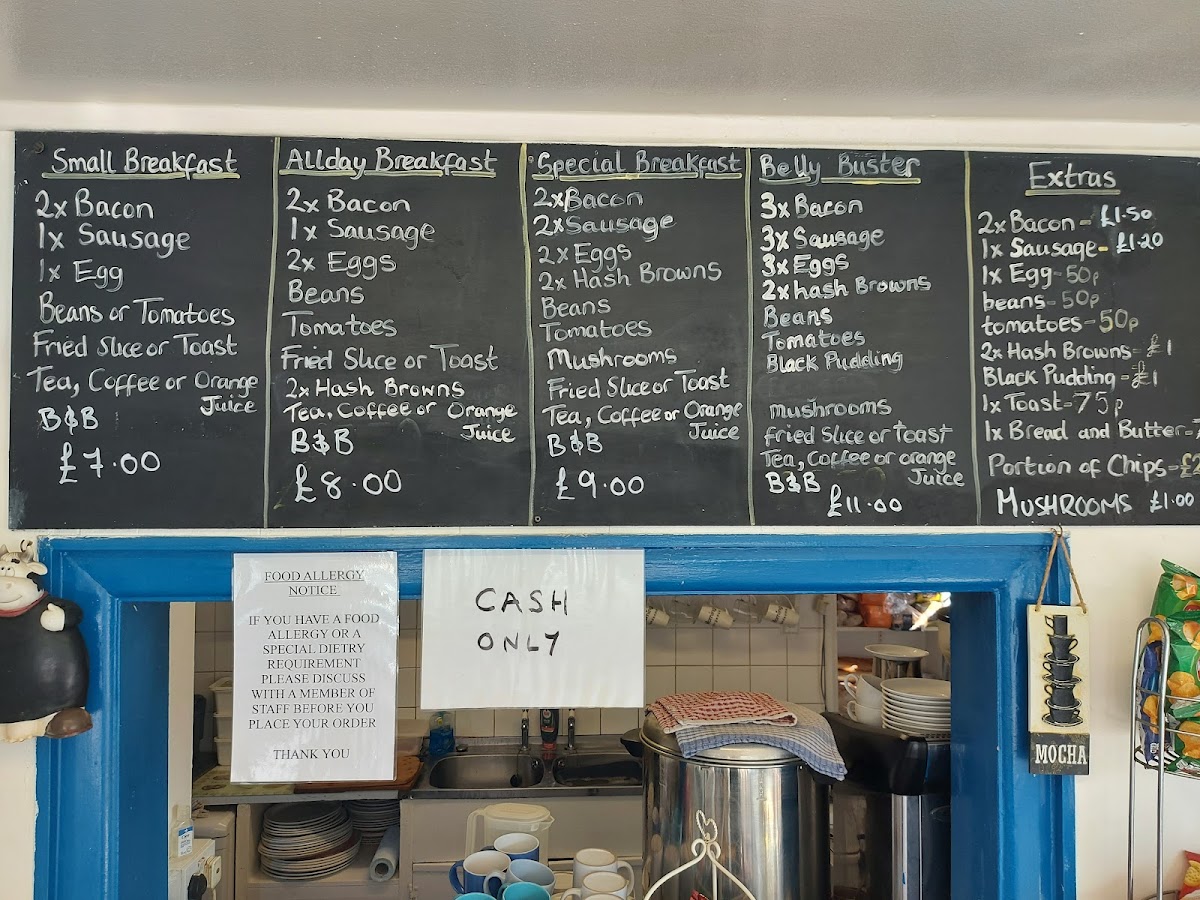 Small Breakfast
2x Bacon
1x Sausage
1x Egg
Beans or Tomatoes
Fried Slice or Toast
Tea, Coffee or Orange
Juice
B&B
£7.00
Allday Breakfast
2x Bacon
1x Sausage
2x Eggs
Beans
Tomatoes
Fried Slice or Toast
2x Hash Browns
Tea, Coffee or Orange
Juice
B&B
£8.00
Special Breakfast
2x Bacon
2x Sausage
2x Eggs
2x Hash Browns
Beans
Tomatoes
Mushrooms
Fried Slice or Toast
Tea, Coffee or Orange
Juice
B&B
£9.00
Belly Buster
3x Bacon
3x Sausage
3x Eggs
2x hash Browns
Beans
Tomatoes
Black Pudding
mushrooms
fried Slice or Toast
Tea, Coffee or orange
Juice
B&B
£11.00
Extras
2x Bacon - £1.50
1x Sausage - £1.20
1x Egg - 50p
beans - 50p
tomatoes - 50p
2x Hash Browns - £1
Black Pudding - £1
1x Toast - 75p
1x Bread and Butter -
Portion of Chips - £2
MUSHROOMS £1.00
FOOD ALLERGY
NOTICE
IF YOU HAVE A FOOD
ALLERGY OR A
SPECIAL DIETRY
REQUIREMENT
PLEASE DISCUSS
WITH A MEMBER OF
STAFF BEFORE YOU
PLACE YOUR ORDER
THANK YOU
CASH
ONLY
MOCHA